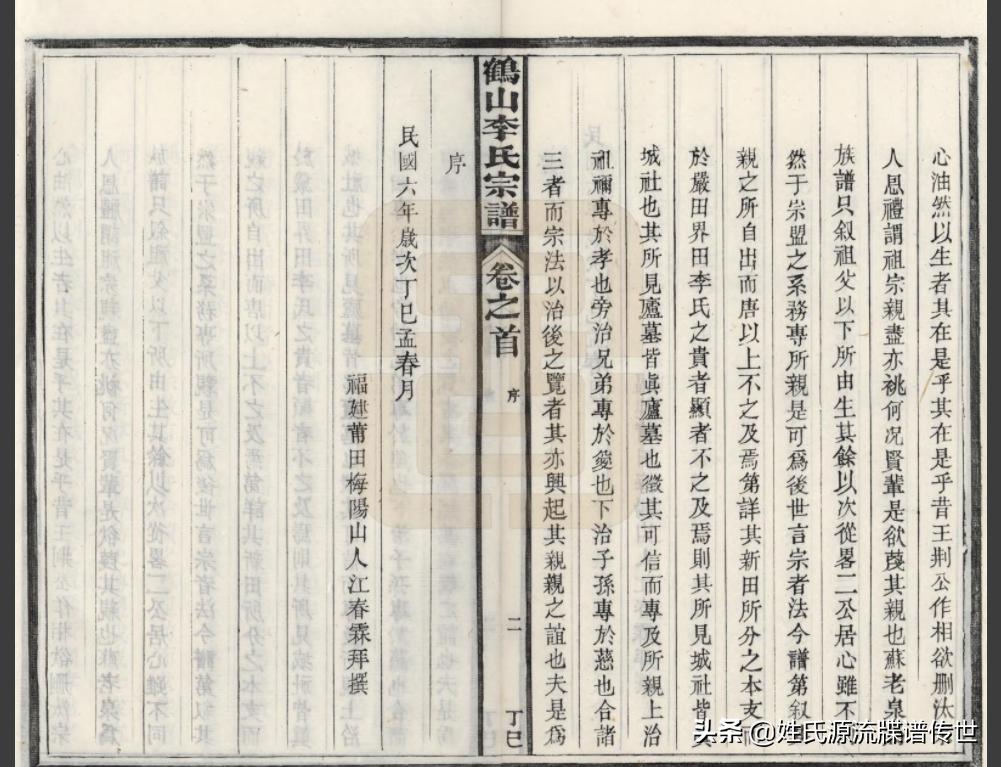 心油然以生者其在是乎其在是乎昔王荆公作相欲删汰
人恩禮謂祖宗親盡亦祧何况賢輩是欲蔑其親也蘇老泉
族譜只叙祖父以下所由生其餘以次從畧二公居心雖不
然于宗盟之系務專所親是可爲後世言宗者法今譜第叙
親之所自出而唐以上不之及焉第詳其新田所分之本支而
於嚴田界田李氏之貴者顯者不之及焉則其所見城社皆
城社也其所見廬墓皆眞廬墓也徵其可信而專及所親上治
祖禰專於孝也旁治兄弟專於愛也下治子孫專於慈也合諸
三者而宗法以治後之覽者其亦興起其親親之誼也夫是爲
鶴山李氏宗譜 卷之首 序 二 丁巳
序
民國六年歲次丁巳孟春月
福建莆田梅陽山人江春霖拜撰
头条 @姓氏源流牒谱传世